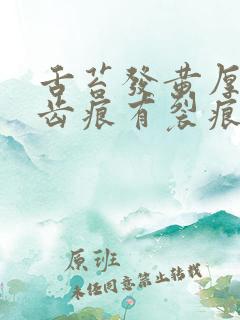 舌苔發黃厚
齒痕有裂痕
原班
未经同意禁止转载